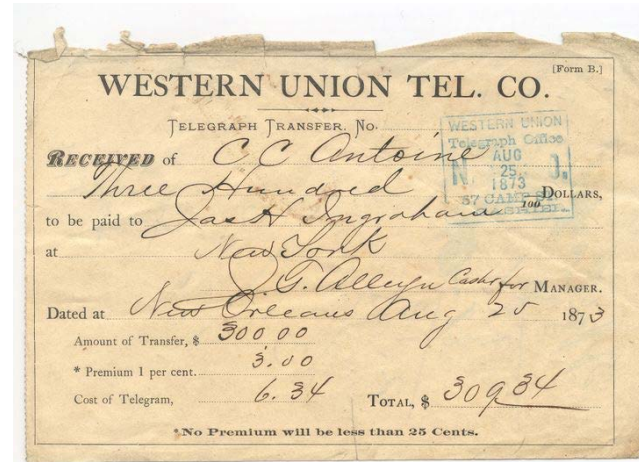 [Form B.]
WESTERN UNION TEL. CO.
TELEGRAPH TRANSFER. No.
WESTERN UNION
Telegraph Office
AUG
25
1873
RECEIVED of C C Antoine
Three Hundred 100 DOLLARS,
to be paid to Jas H Ingraham
at New York
J G. Alleyn Cashr for MANAGER.
Dated at New Orleans Aug 25 1873
Amount of Transfer, $ 300 00
* Premium 1 per cent. 3.00
Cost of Telegram, 6.34 TOTAL, $ 309 34
*No Premium will be less than 25 Cents.